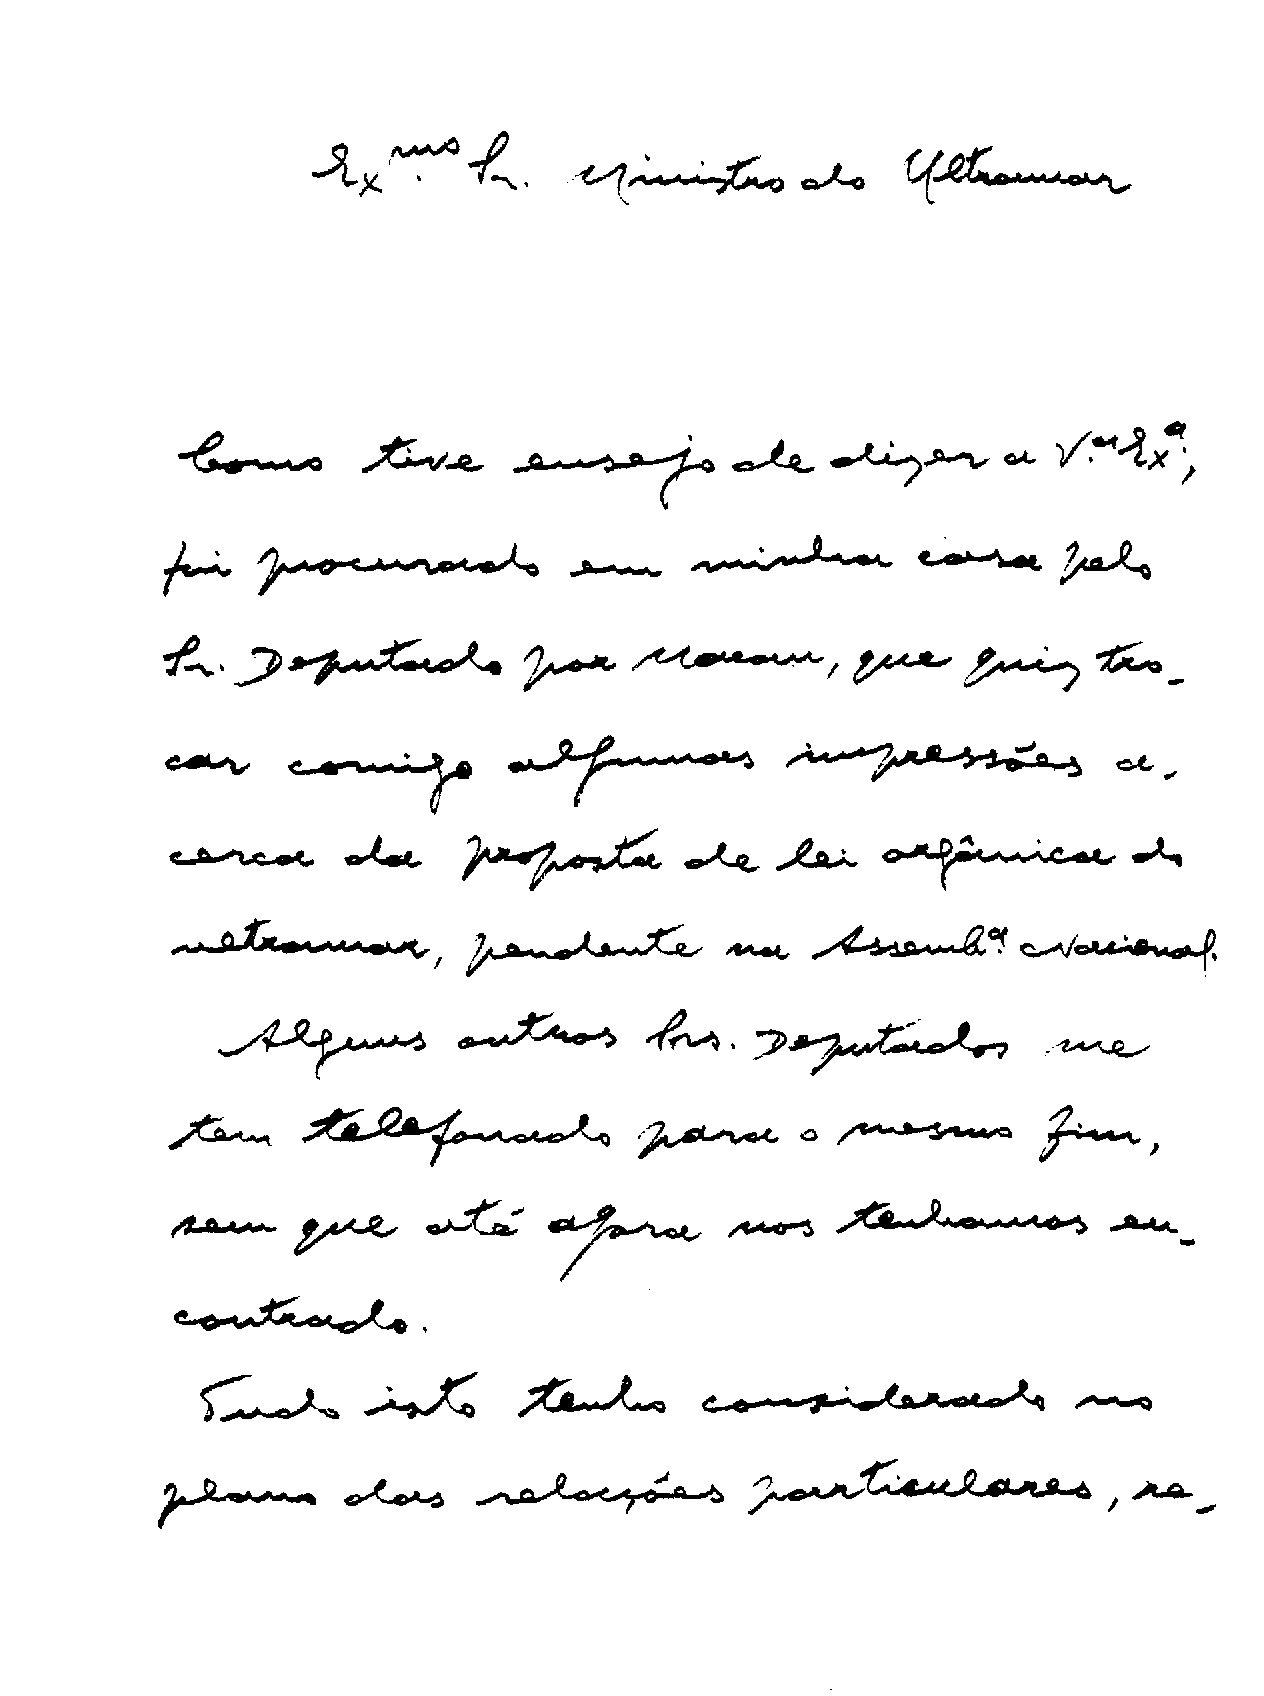 Ex.mo Sr. Ministro do Ultramar
Como tive ensejo de dizer a V.a Ex.a,
fui procurado em minha casa pelo
Sr. Deputado por Macau, que quiz tro-
car comigo algumas impressões a-
cerca da proposta de lei orgânica do
ultramar, pendente na Assemb.a Nacional.
Alguns outros Srs. Deputados me
tem telefonado para o mesmo fim,
sem que até agora nos tenhamos en-
contrado.
Tudo isto tenho considerado no
plano das relações particulares, re-